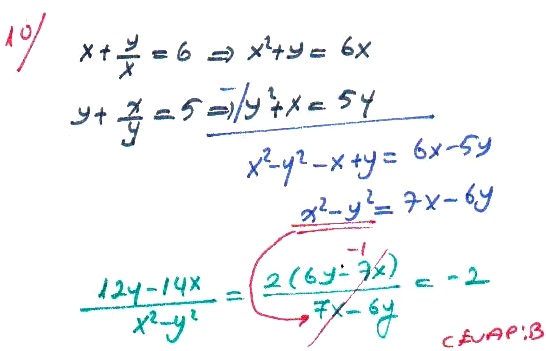 10/
x + y/x = 6 ⇒ x² + y = 6x
y + x/y = 5 ⇒ -/ y² + x = 5y
x² - y² - x + y = 6x - 5y
x² - y² = 7x - 6y
12y - 14x / x² - y² = 2(6y - 7x) / 7x - 6y = -2
-1
CEVAP: B